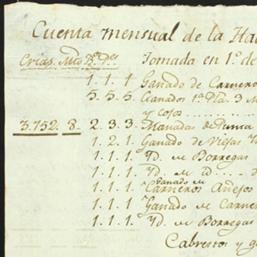 Cuenta mensual de la Hac
Crias. Mtos Ps. Pes Tomada en 1º. de
1. 1. 1. Ganado de Carneros
5. 5. 5. Ganados 1ª Pla. 3
y cojos
3.752. 8. 2. 3. 3. Manadas de Punca
1. 2. 1. Ganado de Viejas
1. 1. 1. Yd. de Borregas
1. 1. 1. Yd. de id
1. 1. 1. Ganado de Carneros Añejos
1. 1. 1. Ganado de Carne
1. 1. 1. Yd. de Borregas
Cabrestos y g